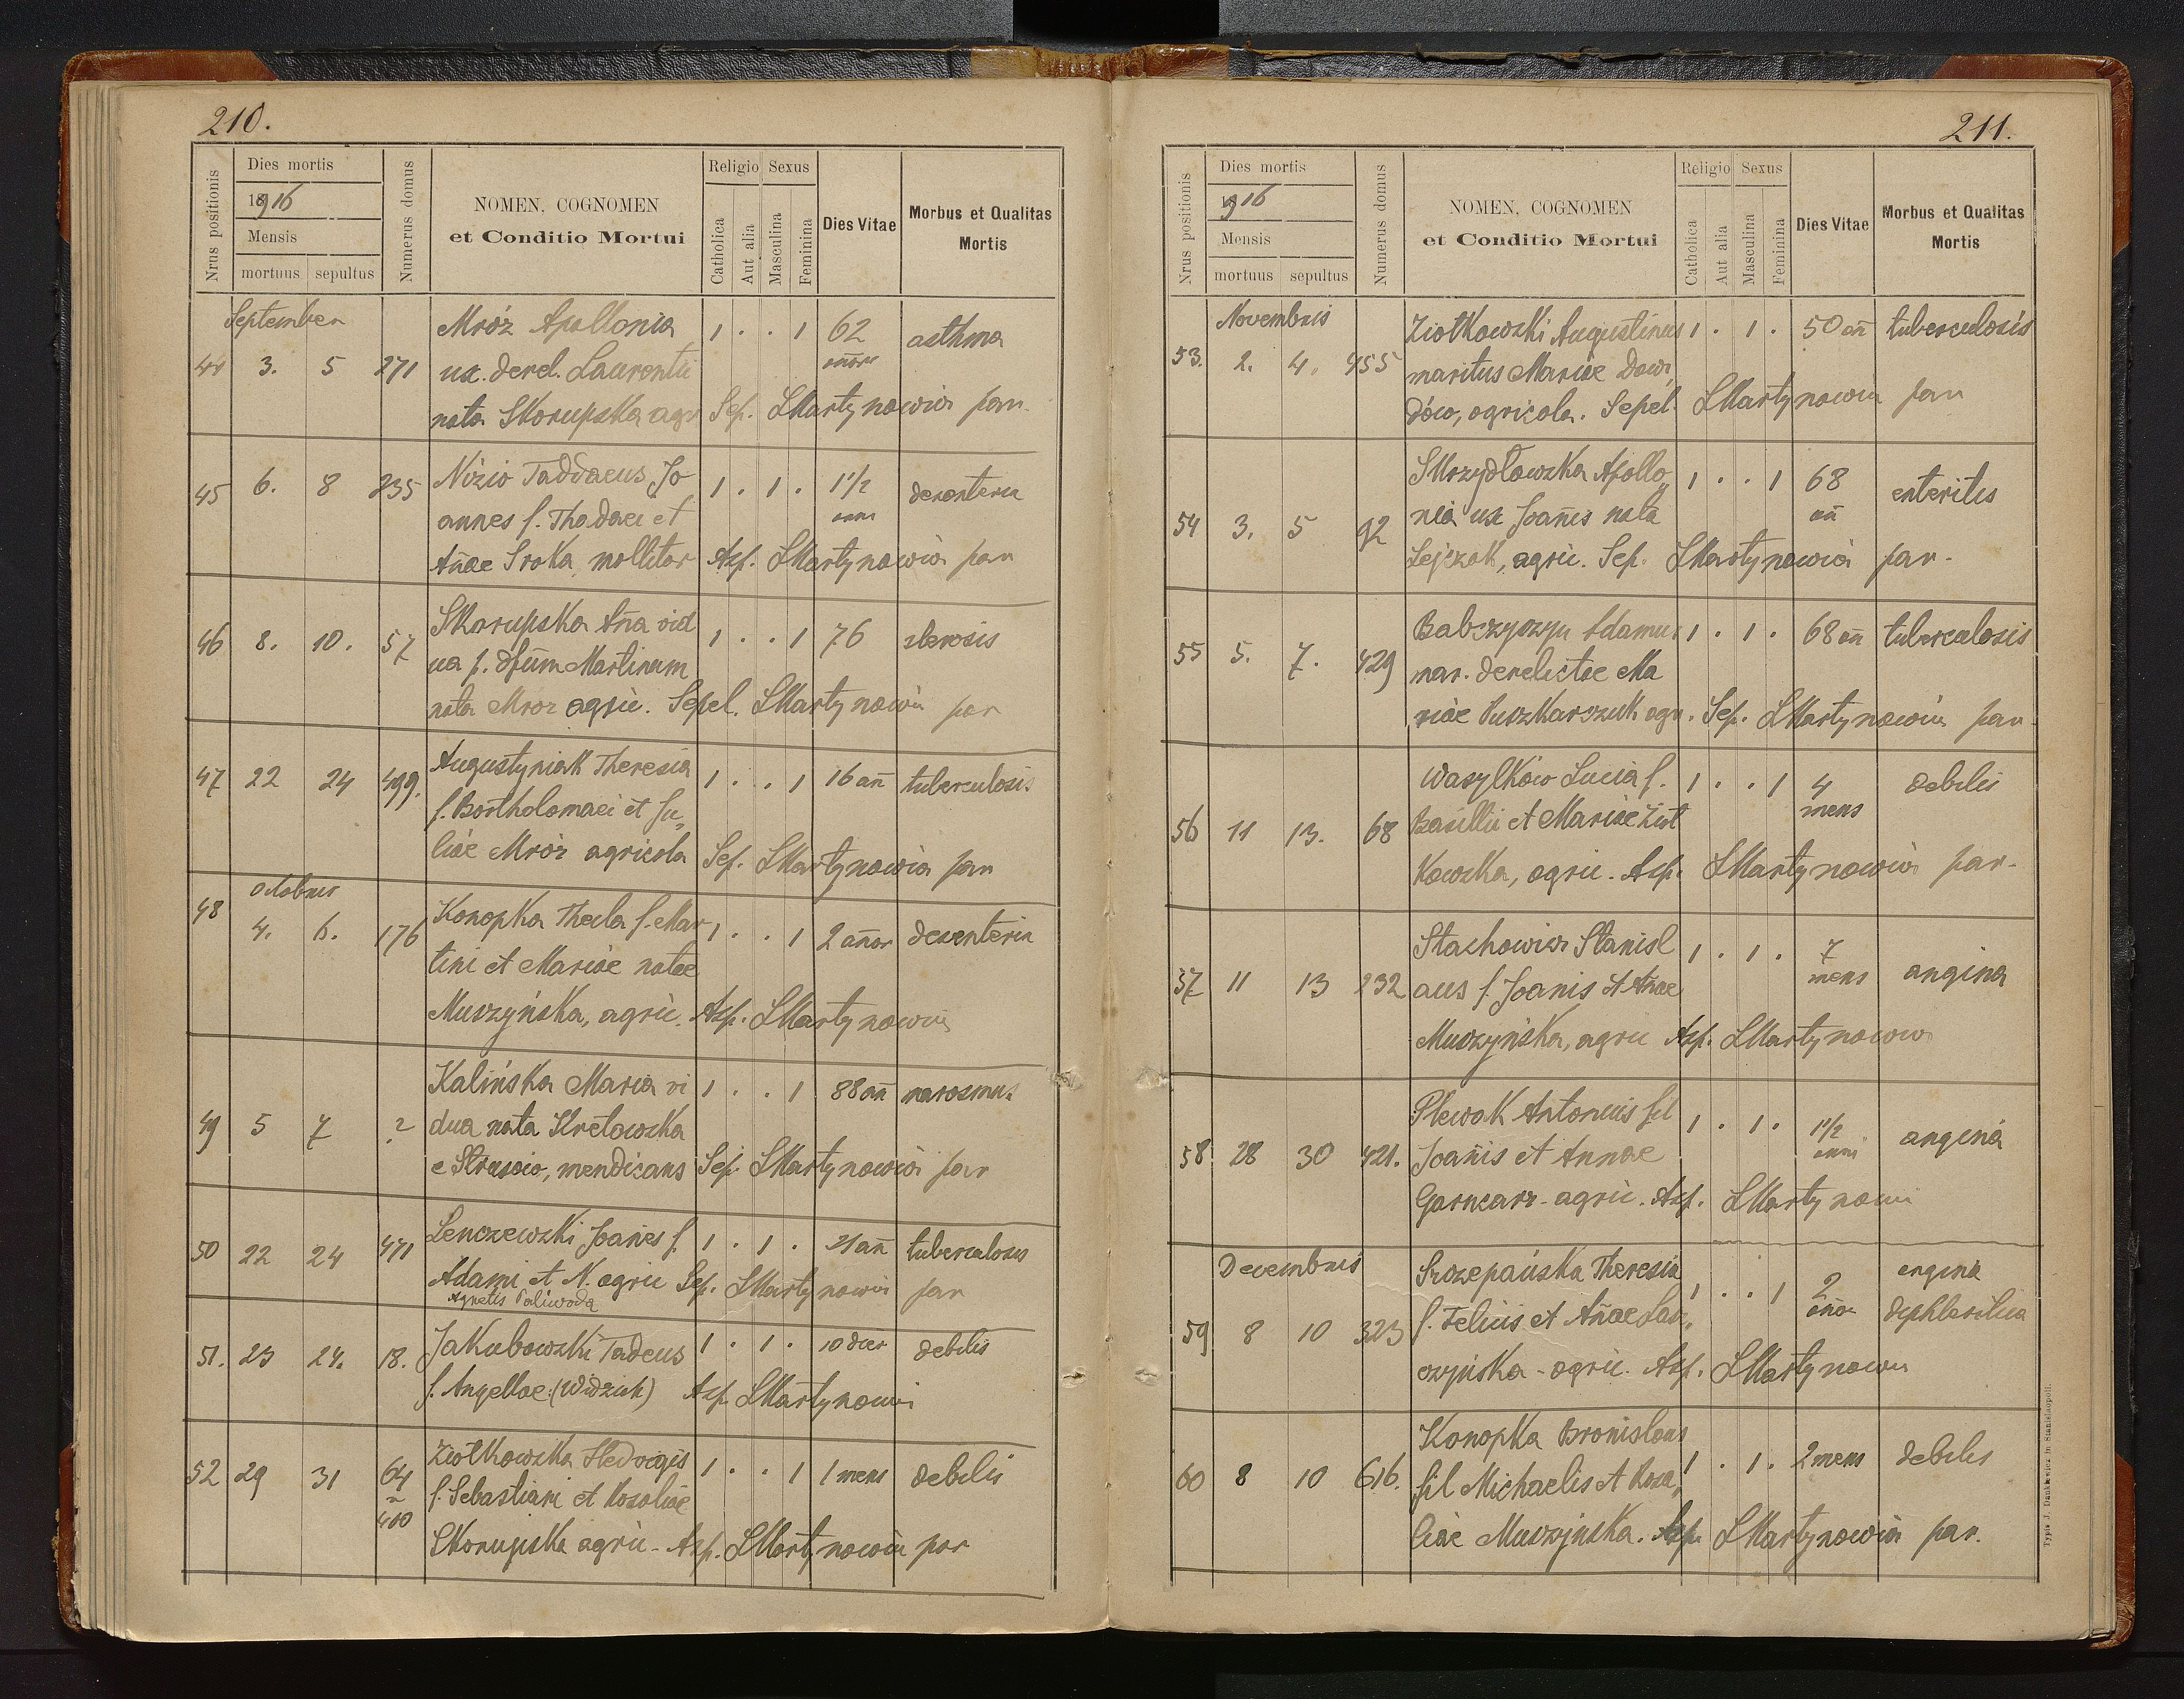 210.
Nrus positionis
Dies mortis
1916
Mensis
mortuus sepultus
Numerus domus
NOMEN, COGNOMEN
et Conditio Mortui
Religio Sexus
Catholica
Aut alia
Masculina
Feminina
Dies Vitae
Morbus et Qualitas
Mortis
September
44 3. 5 271 Mróz Apollonia 1 . . 1 62 annor asthma
ux. derel. Laurentii
nata Skorupska agr Sep. LMartynowicz par.
45 6. 8 235 Nizio Taddaeus Jo 1 . 1 . 1 1/2 anni
annes f. Thadaei et
Annae Sroka, mollitor Asp. LMartynowicz par
46 8. 10. 57 Skorupska Anna vid 1 . . 1 76
ua p. dfum Martinum
nata Mroz agric. Sepel. LMartynowicz par
47 22 24 499. Augustyniak Theresia 1 . . 1 16 ann tuberculosis
f. Bartholomaei et Ju„
liae Mróz agricola Sep. LMartynowicz par
Octobris
48 4. 6. 176 Konopka Thecla f. Mar 1 . . 1 2 annor desenteria
tini et Mariae natae
Muszyńska, agric. Asp. LMartynowicz
49 5 7 ? Kalińska Maria vi 1 . . 1 88 ann marasmus
dua nata Kretowska
e, mendicans Sep. LMartynowicz par
50 22 24 471 Lenczewski Joannes f. 1 . 1 . 21 ann tuberculosis
Adami et N. agric Sep. LMartynowicz par
Agnetis Paliwoda
51. 23 24. 18. Jakubowski Tadeus 1 . 1 . 10 dier debilis
f. Angellae (Widziak) Asp. LMartynowi
52 29 31 64 Ziołkowska Hedvigis 1 . . 1 1 mens debilis
400 f. Sebastiani et Rosaliae
Skorupska agric - Asp. LMartynowicz par
211.
Nrus positionis
Dies mortis
916
Mensis
mortuus sepultus
Numerus domus
NOMEN, COGNOMEN
et Conditio Mortui
Religio Sexus
Catholica
Aut alia
Masculina
Feminina
Dies Vitae
Morbus et Qualitas
Mortis
Novembris
53. 2. 4. 455 Ziołkowski Augustinus 1 . 1 . 50 ann tuberculosis
maritus Mariae Dawi„
dów, agricola. Sepel. LMartynowicz par
54 3. 5 92 Skrzydłowska Apollo„ 1 . . 1 68 ann enteritis
nia ux Joannis nata
Lejczak, agric. Sep. LMartynowicz par.
55 5. 7. 429 Babczyszyn Adamus 1 . 1 . 68 ann tuberculosis
mar. derelictae Ma
riae Puszkarczuk agr. Sep. LMartynowicz par.
56 11 13. 68 Wasylków Lucia f. 1 . . 1 4 mens debilis
Basilii et Mariae Zioł
kowska, agric. Asp. LMartynowicz par.
57 11 13 232 Stachowicz Stanisl 1 . 1 . 7 mens angina
aus f. Joanis et Annae
Muszyńska, agric Asp. LMartynowicz
58 28 30 421. Plewak Antonius fil 1 . 1 . 1 1/2 anni angina
Joannis et Annae
Garncarz - agric. Asp. LMartynowi
Decembris
59 8 10 323 Szczepańska Theresia 1 . . 1 2 annor engina
f. Felicis et Annae
agric. Asp. LMartynowicz
60 8 10 616. Konopka Bronislaus 1 . 1 . 2 mens debilis
fil Michaelis et Rosa„
liae Muszyńska. Asp. LMartynowicz par.
Typis J. Dankiewicz in Stanislaopoli.